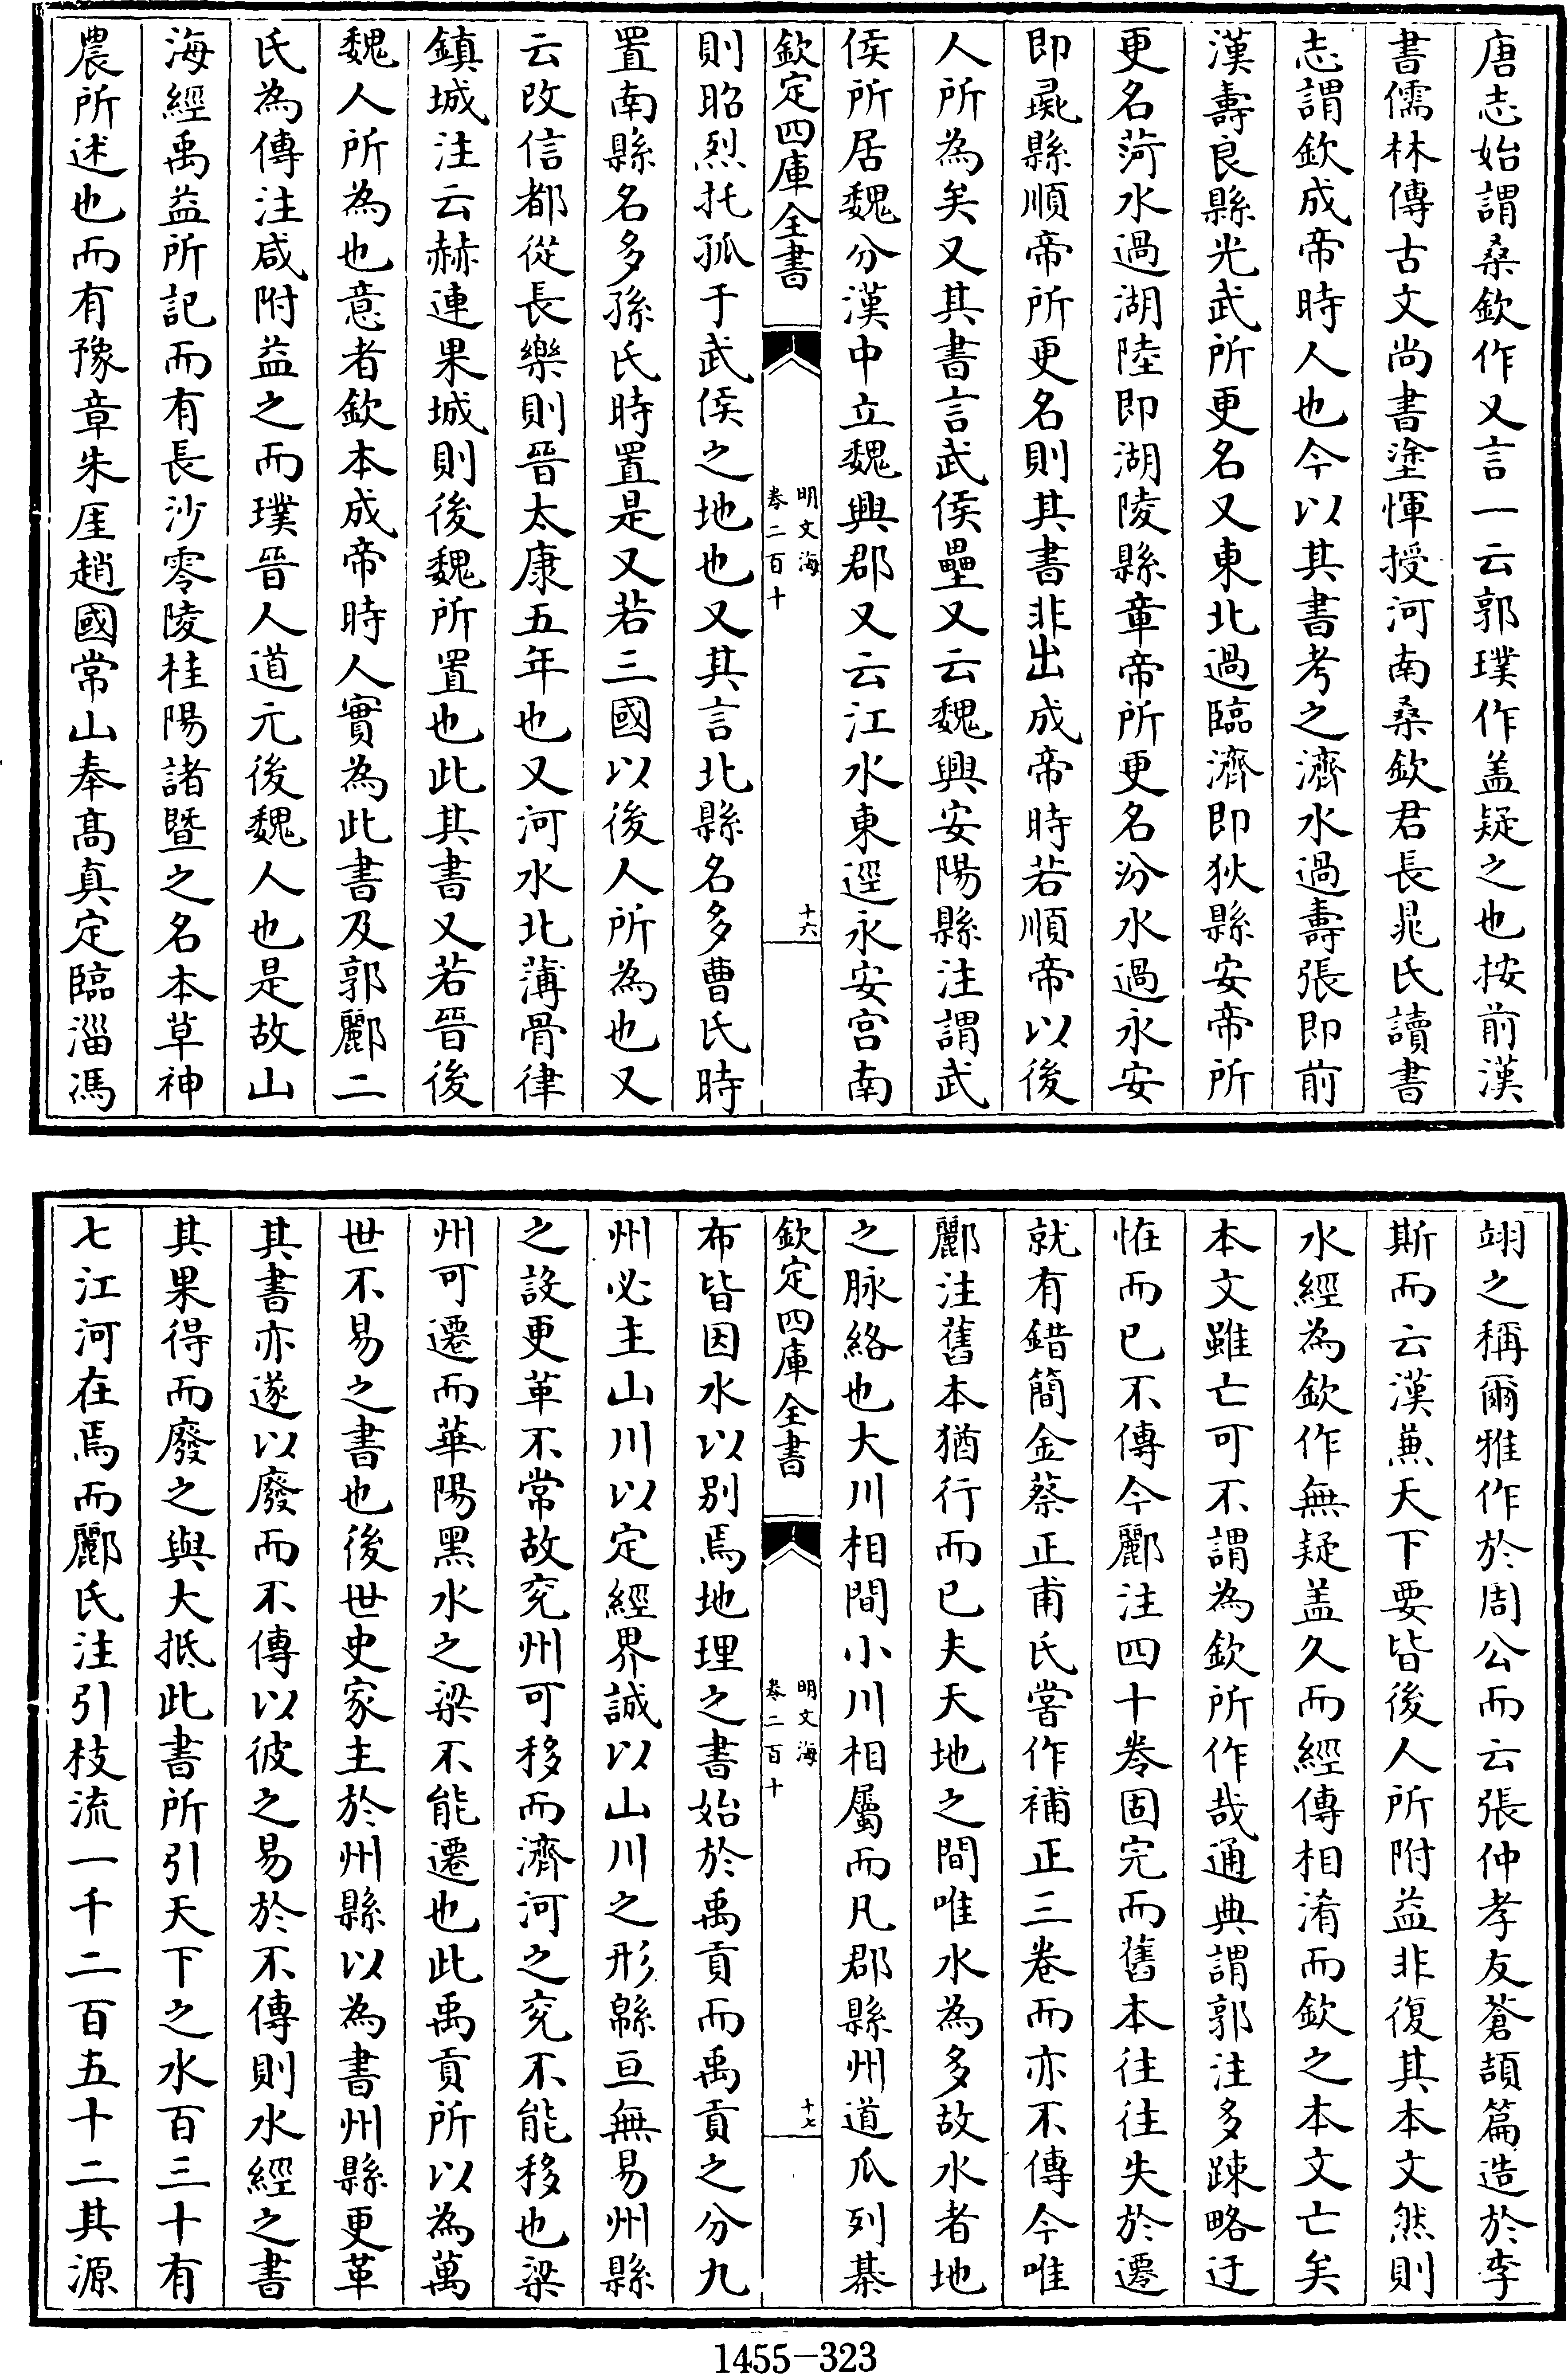 唐志始謂桑欽作又言一云郭璞作盖疑之也按前漢
書儒林傳古文尚書塗惲授河南桑欽君長晁氏讀書
志謂欽成帝時人也今以其書考之濟水過壽張即前
漢壽良縣光武所更名又東北過臨濟即狄縣安帝所
更名菏水過湖陸即湖陵縣章帝所更名汾水過永安
即彘縣順帝所更名則其書非出成帝時若順帝以後
人所為矣又其書言武侯壘又云魏興安陽縣注謂武
侯所居魏分漢中立魏興郡又云江水東逕永安宫南
欽定四庫全書
明文海
卷二百十
十六
則昭烈托孤于武侯之地也又其言北縣名多曹氏時
置南縣名多孫氏時置是又若三國以後人所為也又
云改信都從長樂則晉太康五年也又河水北薄骨律
鎮城注云赫連果城則後魏所置也此其書又若晉後
魏人所為也意者欽本成帝時人實為此書及郭酈二
氏為傳注咸附益之而璞晉人道元後魏人也是故山
海經禹益所記而有長沙零陵桂陽諸暨之名本草神
農所述也而有豫章朱厓趙國常山奉髙真定臨淄馮
翊之稱爾雅作於周公而云張仲孝友蒼頡篇造於李
斯而云漢兼天下要皆後人所附益非復其本文然則
水經為欽作無疑盖久而經傳相淆而欽之本文亡矣
本文雖亡可不謂為欽所作哉通典謂郭注多踈略迂
恠而已不傳今酈注四十卷固完而舊本往往失於遷
就有錯簡金蔡正甫氏嘗作補正三卷而亦不傳今唯
酈注舊本猶行而已夫天地之間唯水為多故水者地
之脉絡也大川相間小川相屬而凡郡縣州道瓜列棊
欽定四庫全書
明文海
卷二百十
十七
布皆因水以别焉地理之書始於禹貢而禹貢之分九
州必主山川以定經界誠以山川之形緜亘無易州縣
之設更革不常故兖州可移而濟河之兖不能移也梁
州可遷而華陽黑水之梁不能遷也此禹貢所以為萬
世不易之書也後世史家主於州縣以為書州縣更革
其書亦遂以廢而不傳以彼之易於不傳則水經之書
其果得而廢之與大抵此書所引天下之水百三十有
七江河在焉而酈氏注引枝流一千二百五十二其源
1455-323